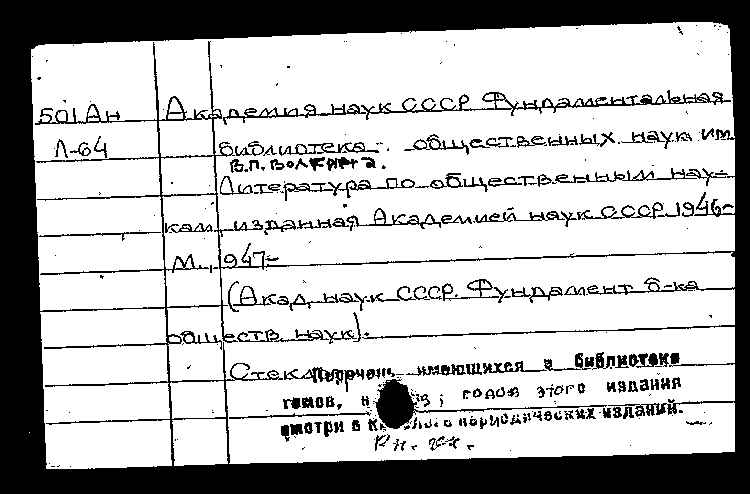 501Ан Академия наук СССР. Фундаментальная
Л-64 библиотека общественных наук им.
В.П. Волгина.
Литература по общественным нау-
кам, изданная Академией наук СССР. 1946-
М., 1947-
(Акад. наук СССР. Фундамент. б-ка
обществ. наук).
Перечень имеющихся в библиотеке
томов, годов этого издания
смотри в периодических изданий.